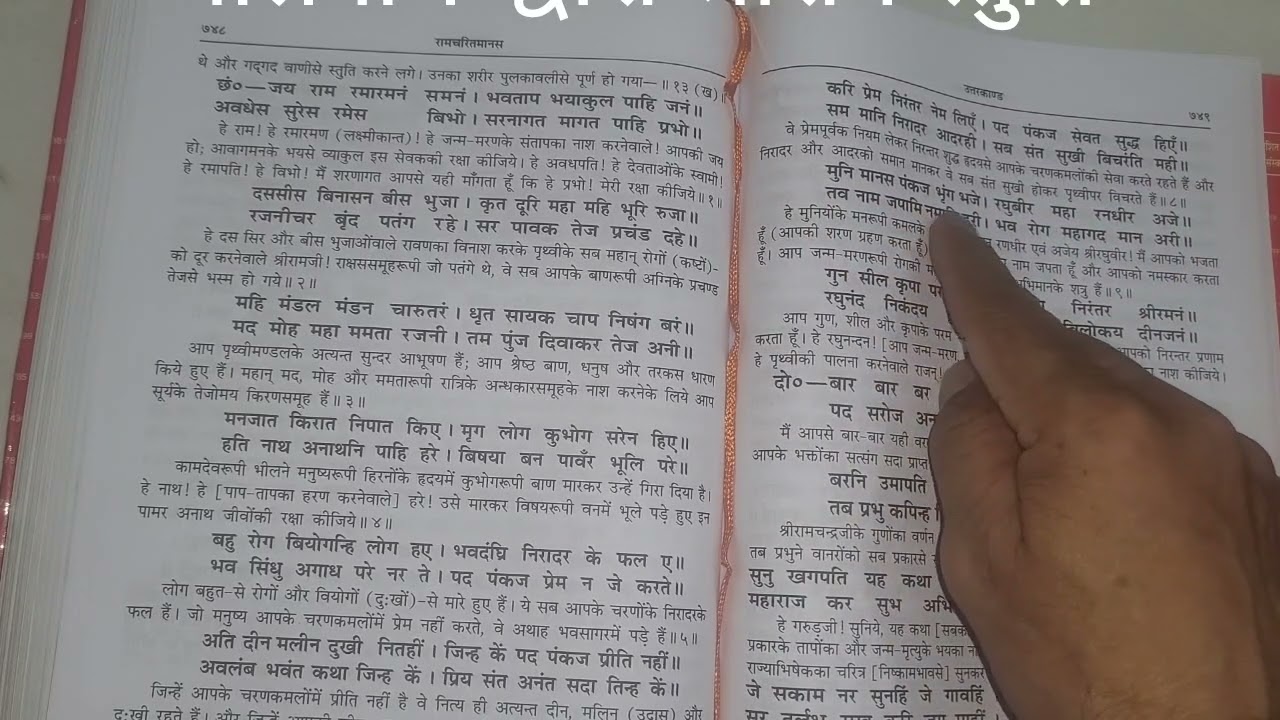 ७४८
रामचरितमानस
थे और गद्गद वाणीसे स्तुति करने लगे। उनका शरीर पुलकावलीसे पूर्ण हो गया—॥१३ (ख)॥
छं०—जय राम रमारमनं समनं। भवताप भयाकुल पाहि जनं॥
अवधेस सुरेस रमेस बिभो। सरनागत मागत पाहि प्रभो॥
हे राम! हे रमारमण (लक्ष्मीकान्त)! हे जन्म-मरणके संतापका नाश करनेवाले! आपकी जय
हो; आवागमनके भयसे व्याकुल इस सेवककी रक्षा कीजिये। हे अवधपति! हे देवताओंके स्वामी!
हे रमापति! हे विभो! मैं शरणागत आपसे यही माँगता हूँ कि हे प्रभो! मेरी रक्षा कीजिये॥१॥
दससीस बिनासन बीस भुजा। कृत दूरि महा महि भूरि रुजा॥
रजनीचर बृंद पतंग रहे। सर पावक तेज प्रचंड दहे॥
हे दस सिर और बीस भुजाओंवाले रावणका विनाश करके पृथ्वीके सब महान् रोगों (कष्टों)-
को दूर करनेवाले श्रीरामजी! राक्षससमूहरूपी जो पतंगे थे, वे सब आपके बाणरूपी अग्निके प्रचण्ड
तेजसे भस्म हो गये॥२॥
महि मंडल मंडन चारुतरं। धृत सायक चाप निषंग बरं॥
मद मोह महा ममता रजनी। तम पुंज दिवाकर तेज अनी॥
आप पृथ्वीमण्डलके अत्यन्त सुन्दर आभूषण हैं; आप श्रेष्ठ बाण, धनुष और तरकस धारण
किये हुए हैं। महान् मद, मोह और ममतारूपी रात्रिके अन्धकारसमूहके नाश करनेके लिये आप
सूर्यके तेजोमय किरणसमूह हैं॥३॥
मनजात किरात निपात किए। मृग लोग कुभोग सरेन हिए॥
हति नाथ अनाथनि पाहि हरे। बिषया बन पावँर भूलि परे॥
कामदेवरूपी भीलने मनुष्यरूपी हिरनोंके हृदयमें कुभोगरूपी बाण मारकर उन्हें गिरा दिया है।
हे नाथ! हे [पाप-तापका हरण करनेवाले] हरे! उसे मारकर विषयरूपी वनमें भूले पड़े हुए इन
पामर अनाथ जीवोंकी रक्षा कीजिये॥४॥
बहु रोग बियोगन्हि लोग हए। भवदंघ्रि निरादर के फल ए॥
भव सिंधु अगाध परे नर ते। पद पंकज प्रेम न जे करते॥
लोग बहुत-से रोगों और वियोगों (दुःखों)-से मारे हुए हैं। ये सब आपके चरणोंके निरादरके
फल हैं। जो मनुष्य आपके चरणकमलोंमें प्रेम नहीं करते, वे अथाह भवसागरमें पड़े हैं॥५॥
अति दीन मलीन दुखी नितहीं। जिन्ह कें पद पंकज प्रीति नहीं॥
अवलंब भवंत कथा जिन्ह कें। प्रिय संत अनंत सदा तिन्ह कें॥
जिन्हें आपके चरणकमलोंमें प्रीति नहीं है वे नित्य ही अत्यन्त दीन, मलिन (उदास) और
उत्तरकाण्ड
७४९
करि प्रेम निरंतर नेम लिएँ। पद पंकज सेवत सुद्ध हिएँ॥
सम मानि निरादर आदरही। सब संत सुखी बिचरंति मही॥
वे प्रेमपूर्वक नियम लेकर निरन्तर शुद्ध हृदयसे आपके चरणकमलोंकी सेवा करते रहते हैं और
निरादर और आदरको समान मानकर वे सब संत सुखी होकर पृथ्वीपर विचरते हैं॥८॥
मुनि मानस पंकज भृंग भजे। रघुबीर महा रनधीर अजे॥
तव नाम जपामि भव रोग महागद मान अरी॥
हे मुनियोंके मनरूपी कमलके रणधीर एवं अजेय श्रीरघुवीर! मैं आपको भजता
हूँ (आपकी शरण ग्रहण करता हूँ) नाम जपता हूँ और आपको नमस्कार करता
हूँ। आप जन्म-मरणरूपी रोगकी शत्रु हैं॥९॥
गुन सील कृपा निरंतर श्रीरमनं॥
रघुनंद निकंदय दीनजनं॥
आप गुण, शील और कृपाके परम आपको निरन्तर प्रणाम
करता हूँ। हे रघुनन्दन! [आप जन्म-मरण नाश कीजिये।
हे पृथ्वीकी पालना करनेवाले राजन्!
दो०—बार बार बर
पद सरोज
मैं आपसे बार-बार यही
आपके भक्तोंका सत्संग सदा
बरनि उमापति
तब प्रभु कपिन्ह
श्रीरामचन्द्रजीके गुणोंका वर्णन
तब प्रभुने वानरोंको सब प्रकारसे
सुनु खगपति यह कथा
महाराज कर सुभ
हे गरुड़जी! सुनिये, यह कथा
प्रकारके तापोंका और जन्म-मृत्युके भयका
राज्याभिषेकका चरित्र [निष्कामभावसे] सुनकर
जे सकाम नर सुनहिं जे गावहिं